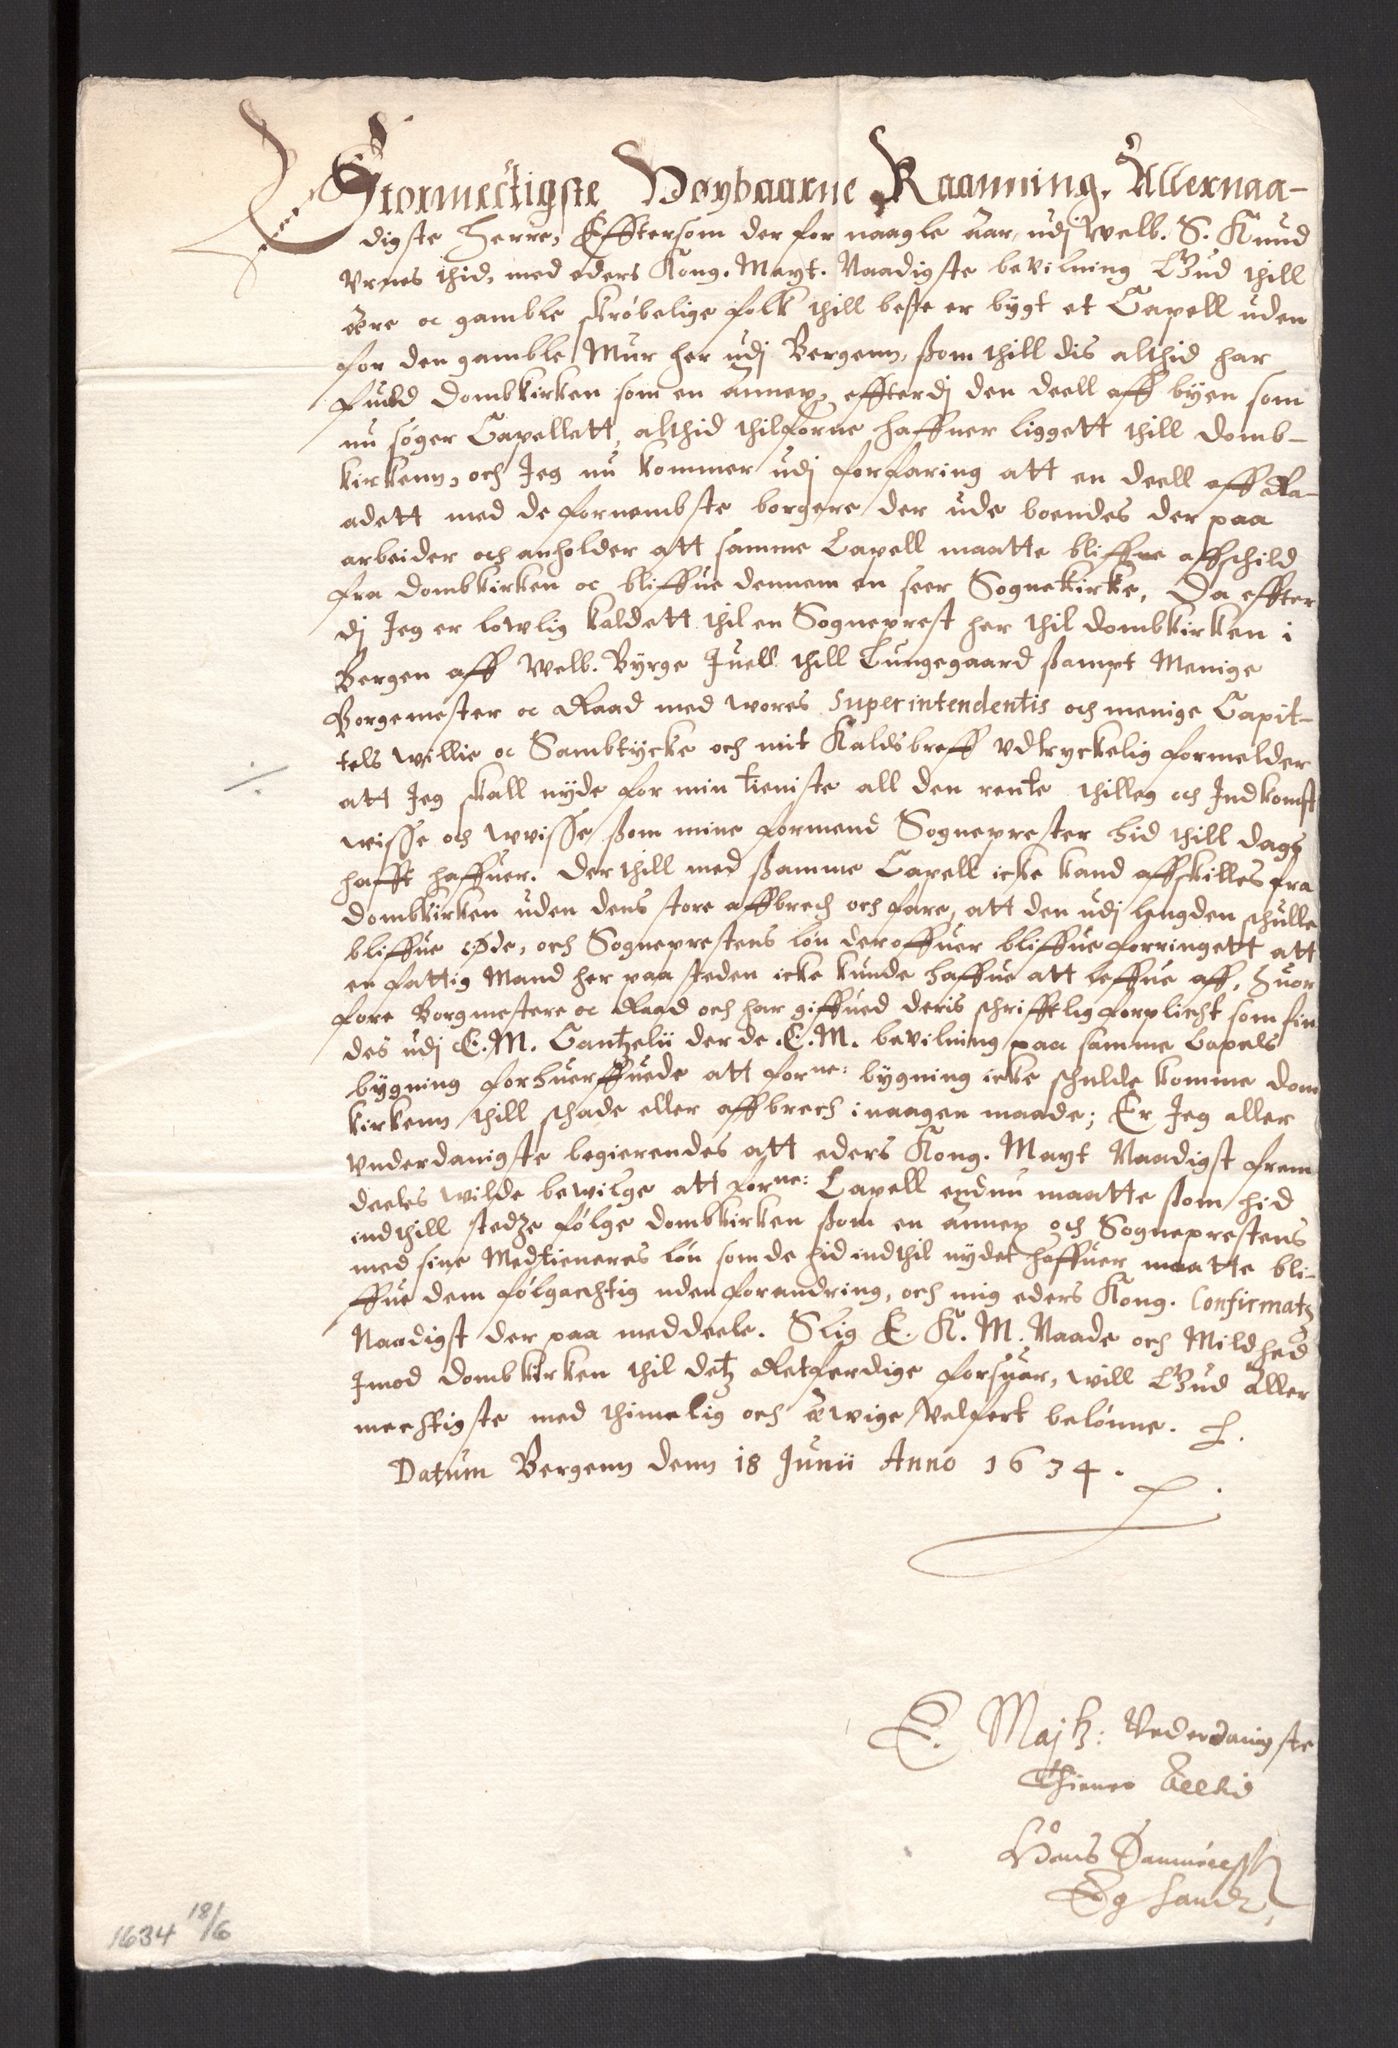 Stormectigste Høybaarne Kaanning. Allernaa-
digste Herre, Efftersom der for naagle Aar, udj Welb. S. Knud
Vrnes thid, med eders Kong. Mayt. Naadigste bevilning Gud thill
ære oc gamble skrøbelige folk thill beste er bygt et Capell uden
for den gamble Mur her udj Bergenn, ßom thill dis althid har
fuld Dombkirken som en Annex, effterdj den deell aff byen som
nu søger Capellett, althid thilforne haffuer liggett thill Domb-
kirkenn, och Jeg nu kommer udj forfaring att en deell aff Ra-
adett med de fornembste borgere der ude boendes der paa
arbeider och anholder att samme Capell maatte bliffue affschild
fra Dombkirken oc bliffue dennem en seer Sognekirke, Da effter
dj Jeg er lowlig kaldett thil en Sogneprest her thil Dombkirken i
Bergen aff Welb. Byrge Juell thill Lungegaard ßampt Menige
Borgemester oc Raad med wores Superintendentis och menige Capit-
tels willie oc Sambtycke och mit Kaldsbreff vdtryckelig formelder
att Jeg skall nyde for min tieniste all den rente thilleg och Indkomst
wisse och wvisse ßom mine formend Sogneprester hid thill dags
hafft haffuer. Der thill med ßamme Capell icke kand affskilles fra
Dombkirken uden dens store affbrech och fare, att den udj lengden schulle
bliffue øde, och Sogneprestens løn deroffuer bliffue forringett att
en fattig Mand her paa steden icke kunde haffue att leffue aff, Huor
fore Borgmestere oc Raad och har giffued deris schrifftlig forplicht som fin
des udj E. M. Cantzelii der de E. M. bevilning paa samme Capels
bygning forhuerffuede att forne: bygning icke schulde komme Dom
kirkenn thill schade eller affbrech i naagen maade; Er Jeg aller
vnderdanigste begierendes att eders Kong. Mayt Naadigst frem
deeles wilde bewilge att forne: Capell endnu maatte ßom hid
indthill stedze følge Dombkirken ßom en Annex och Sogneprestens
med sine Medtieneres løn som de hid indthil nydet haffuer maatte bli-
ffue dem følgachtig uden forandring, och mig eders Kong. Confirmatz
Naadigst der paa meddeele. Slig E. K. M. Naade och Mildhed
Imod Dombkirken thil detz Retferdige forsuar, will Gud Aller
mectigste med thimelig och æwige Velfert belønne.
Datum Bergenn denn 18 Junii Anno 1634.
E. Majtz: Vnderdanigste
Thiener Alltid
Hans
1634 18/6